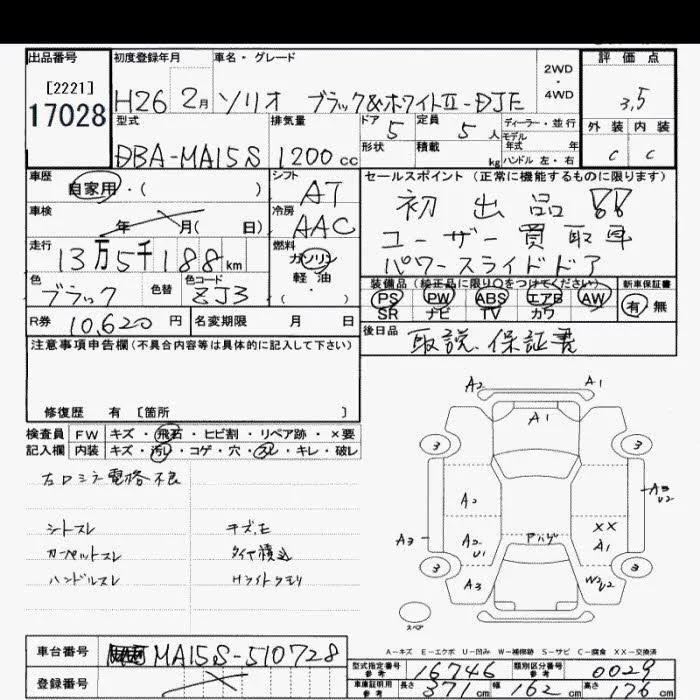 出品番号 初度登録年月 車名・グレード 評価点
[2221]
17028 H26 2月 ソリオ ブラック&ホワイトⅡ-DJE 2WD・4WD 3.5
型式 排気量 ドア 5 定員 5人 ディーラー・並行 外装 内装
DBA-MA15S 1200cc 形状 積載 kg モデル年式 年 ハンドル 左・右 C C
車歴 自家用・( ) シフト AT セールスポイント(正常に機能するものに限ります)
車検 年 月( 日) 冷房 AAC 初出品!!
ユーザー買取車
走行 13万5千188km 燃料 ガソリン 軽油 ( ・ ) パワースライドドア
装備品(純正品に限り○をつけてください) 新車保証書
色 ブラック 色替 色コード ZJ3 PS PW ABS エアB AW 有 無
SR ナビ TV カワ
R券 10,620円 名変期限 月 日 後日品 取説、保証書
注意事項申告欄(不具合内容等は具体的に記入して下さい)
修復歴 有 [箇所 ]
検査員 FW キズ・飛石・ヒビ割・リペア跡・×要
記入欄 内装 キズ・汚レ・コゲ・穴・スレ・キレ・破レ
左ロミラー電格不良
シートスレ キズ、モ
カーペットスレ タイヤ積込
ハンドルスレ Hライトクモリ
A2 A1
A1
3 3
A2 A3 U2
A3 A2 U1 アハゲ XX A1
3 3
A3 W2 U2
スペア
A-キズ E-エクボ U-凹み W-補修跡 S-サビ C-腐食 XX-交換済
車台番号 MA15S-510728
型式指定番号 参考 16746 類別区分番号 参考 0029
登録番号
車庫証明用 参考 長さ 371cm 幅 162cm 高さ 76cm